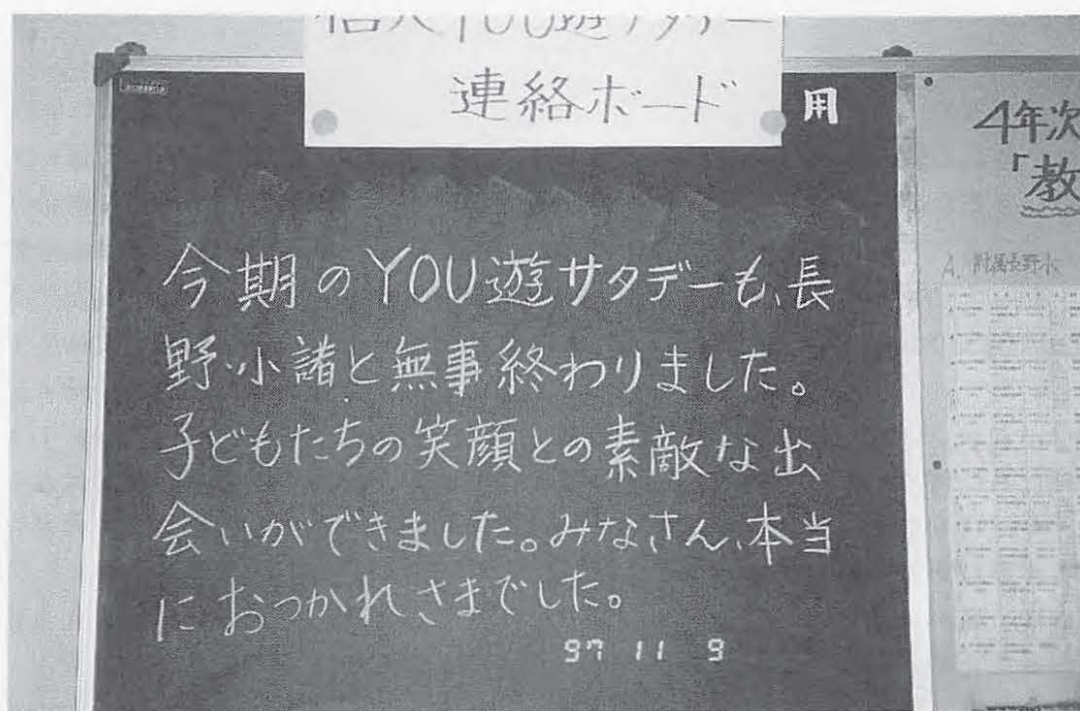 YOU遊サタデー
連絡ボード
用
今期のYOU遊サタデーも、長
野・小諸と無事終わりました。
子どもたちの笑顔との素敵な出
会いができました。みなさん、本当
におつかれさまでした。
97 11 9
4年次
「教
A. 附属長野小